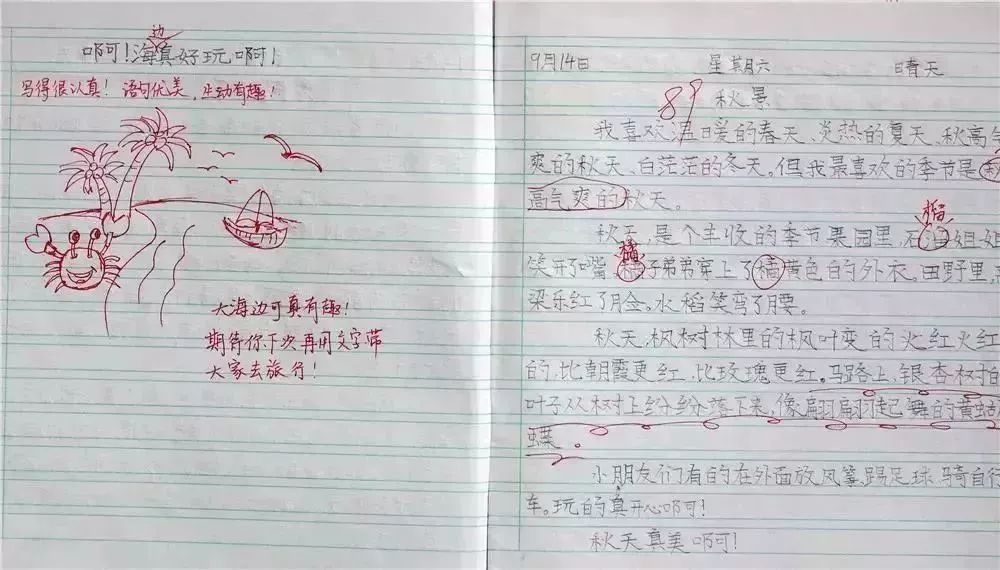 边
啊可!海真好玩啊可!
写得很认真!语句优美,生动有趣!
大海边可真有趣!
期待你下次再用文字带
大家去旅行!
9月14日 星期六 晴天
89
秋景
我喜欢温暖的春天、炎热的夏天、秋高气
爽的秋天、白茫茫的冬天。但我最喜欢的季节是秋
高气爽的秋天。
秋天,是个丰收的季节果园里,石 姐姐
笑开了嘴 子弟弟穿上了橘黄色白的外衣。田野里,
梁乐红了脸。水稻笑弯了腰。
秋天,枫树林里的枫叶变的火红火红
的,比朝霞更红,比玫瑰更红。马路上,银杏树的
叶子从树上纷纷落下来,像翩翩起舞的黄蝴
蝶。
小朋友们有的在外面放风筝,踢足球,骑自行
车。玩的真开心啊可!
秋天真美啊可!